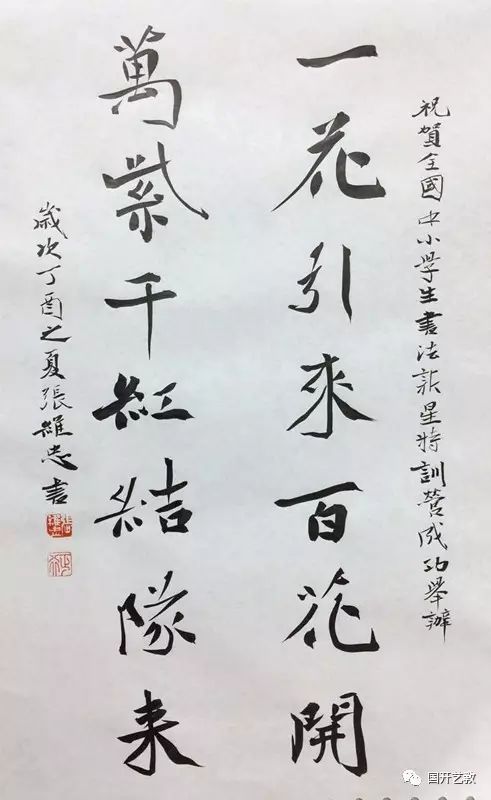 祝賀全國中小學生書法新星特訓營成功舉辦
一花引來百花開
萬紫千紅結隊来
歲次丁酉之夏張維忠書
国开艺教